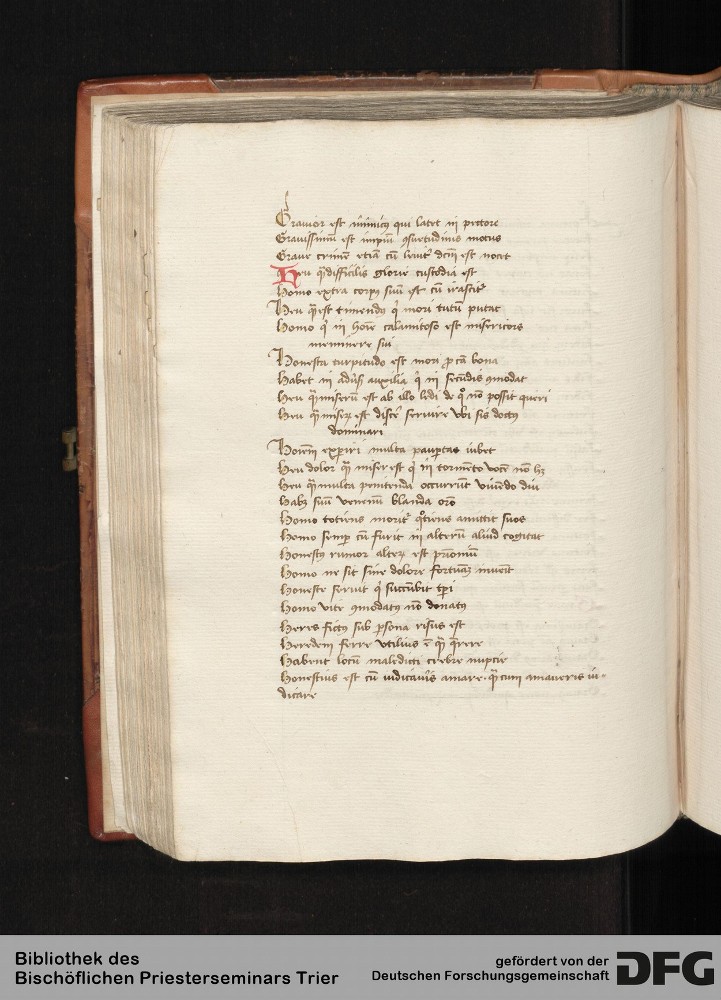 Grauior est inimicus qui latet in pectore
Grauissimum est imperium consuetudinis motus
Graue crimen etiam cum leuiter dictum est nocet
Heu quam difficilis glorie custodia est
Homo extra corpus suum est cum irascitur
Heu quam est timendus qui mori tutum putat
Homo qui in homine calamitoso est misericors
meminere sui
Honesta turpitudo est mora pro causa bona
Habet in aduersis auxilia qui in secundis commodat
Heu quam miserum est ab illo ledi de quo non possit queri
Heu quam miserum est discere seruire ubi sis doctus
dominari
Hominem experiri multa paupertas iubet
Heu dolor quam miser est qui in tormento vocem non habet
Heu quam multa penitenda occurrunt viuendo diu
Habet suum venenum blanda oratio
Homo totiens moritur quotiens amittit suos
Homo semper cum furit in alterum aliud cogitat
Honestus rumor alterum est patrimonium
Homo ne sit sine dolore fortunam inuenit
Honeste seruit qui succumbit tempori
Homo vite commodatus non donatus
Heres fictus sub persona risus est
Heredem ferre utilius est quam querere
Habent locum maledicti crebre nuptie
Honestius est cum iudicaueris amare quam cum amaueris iu-
dicare
Bibliothek des
Bischöflichen Priesterseminars Trier
gefördert von der
Deutschen Forschungsgemeinschaft
DFG